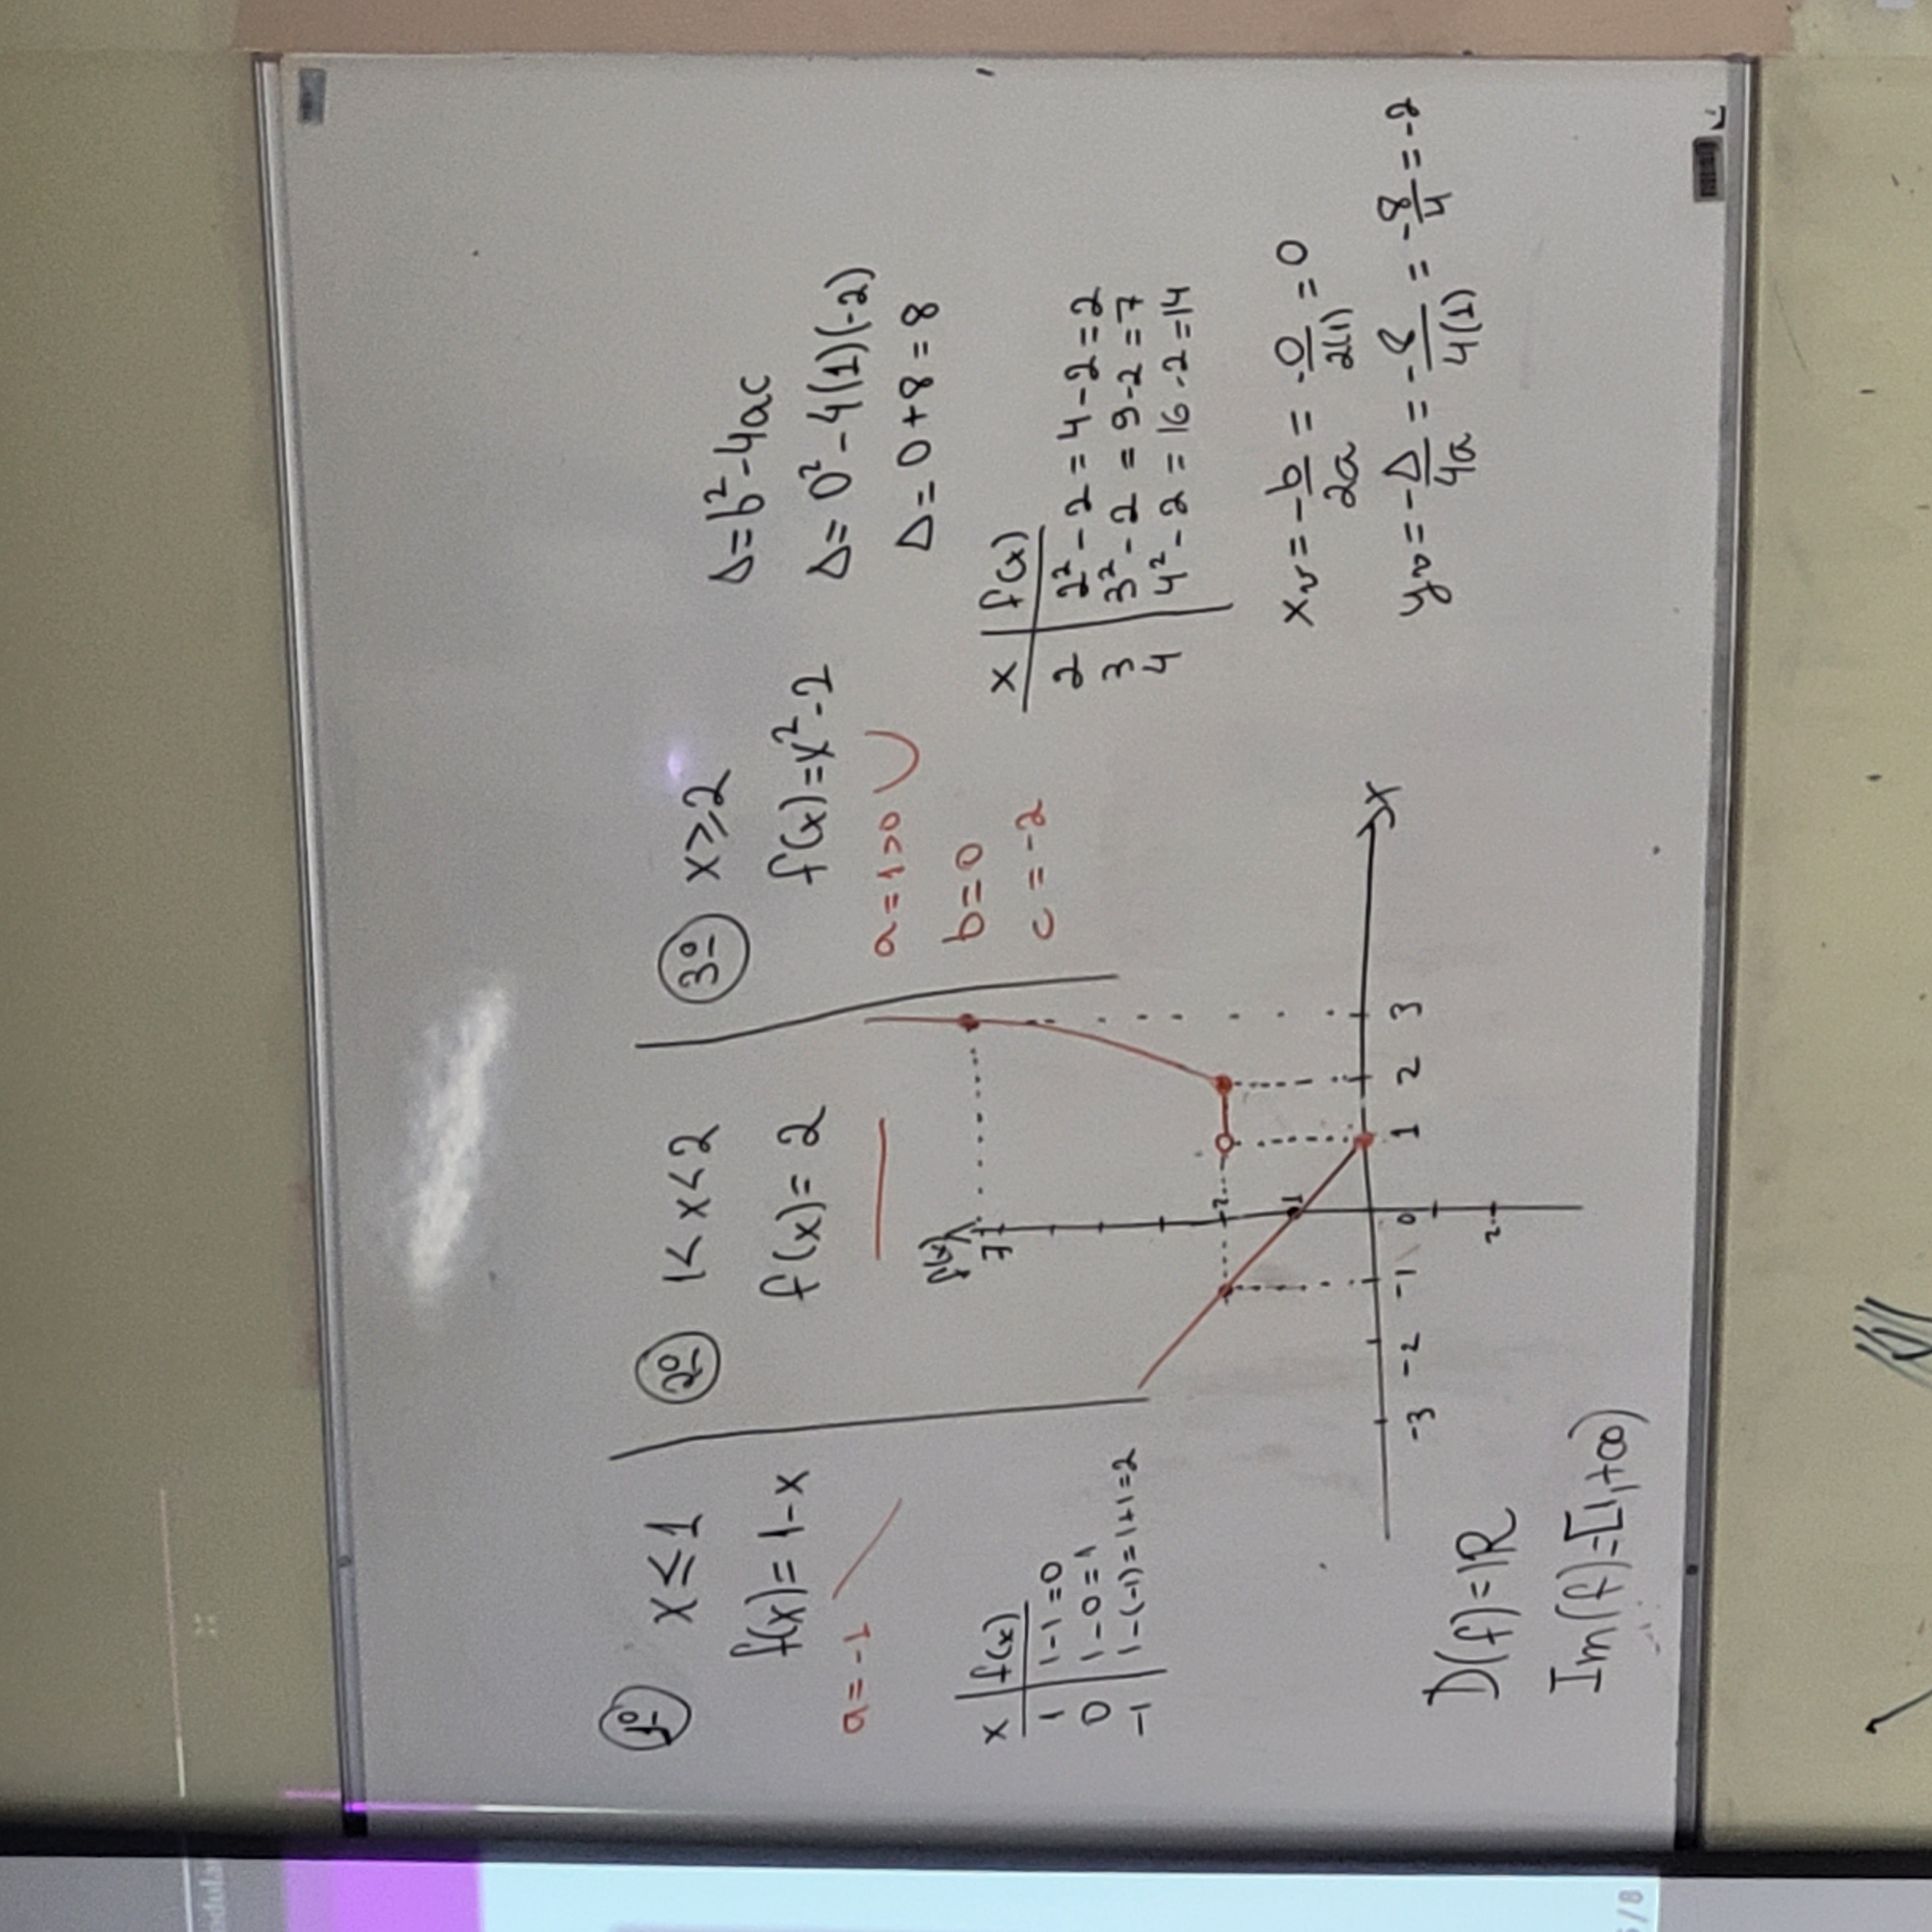 1º x ≤ 1
f(x) = 1-x
a = -1
x | f(x)
1 | 1-1=0
0 | 1-0=1
-1 | 1-(-1)=1+1=2
2º 1 < x < 2
f(x) = 2
3º x ⩾ 2
f(x) = x² - 2
a = 1 > 0
b = 0
c = -2
Δ = b² - 4ac
Δ = 0² - 4(1)(-2)
Δ = 0 + 8 = 8
x | f(x)
2 | 2² - 2 = 4 - 2 = 2
3 | 3² - 2 = 9 - 2 = 7
4 | 4² - 2 = 16 - 2 = 14
xv = -b/2a = -0/2(1) = 0
yv = -Δ/4a = -8/4(1) = -8/4 = -2
f(x)
7
2
1
-3 -2 -1 0 1 2 3 x
2
D(f) = IR
Im(f) = [1,+∞)